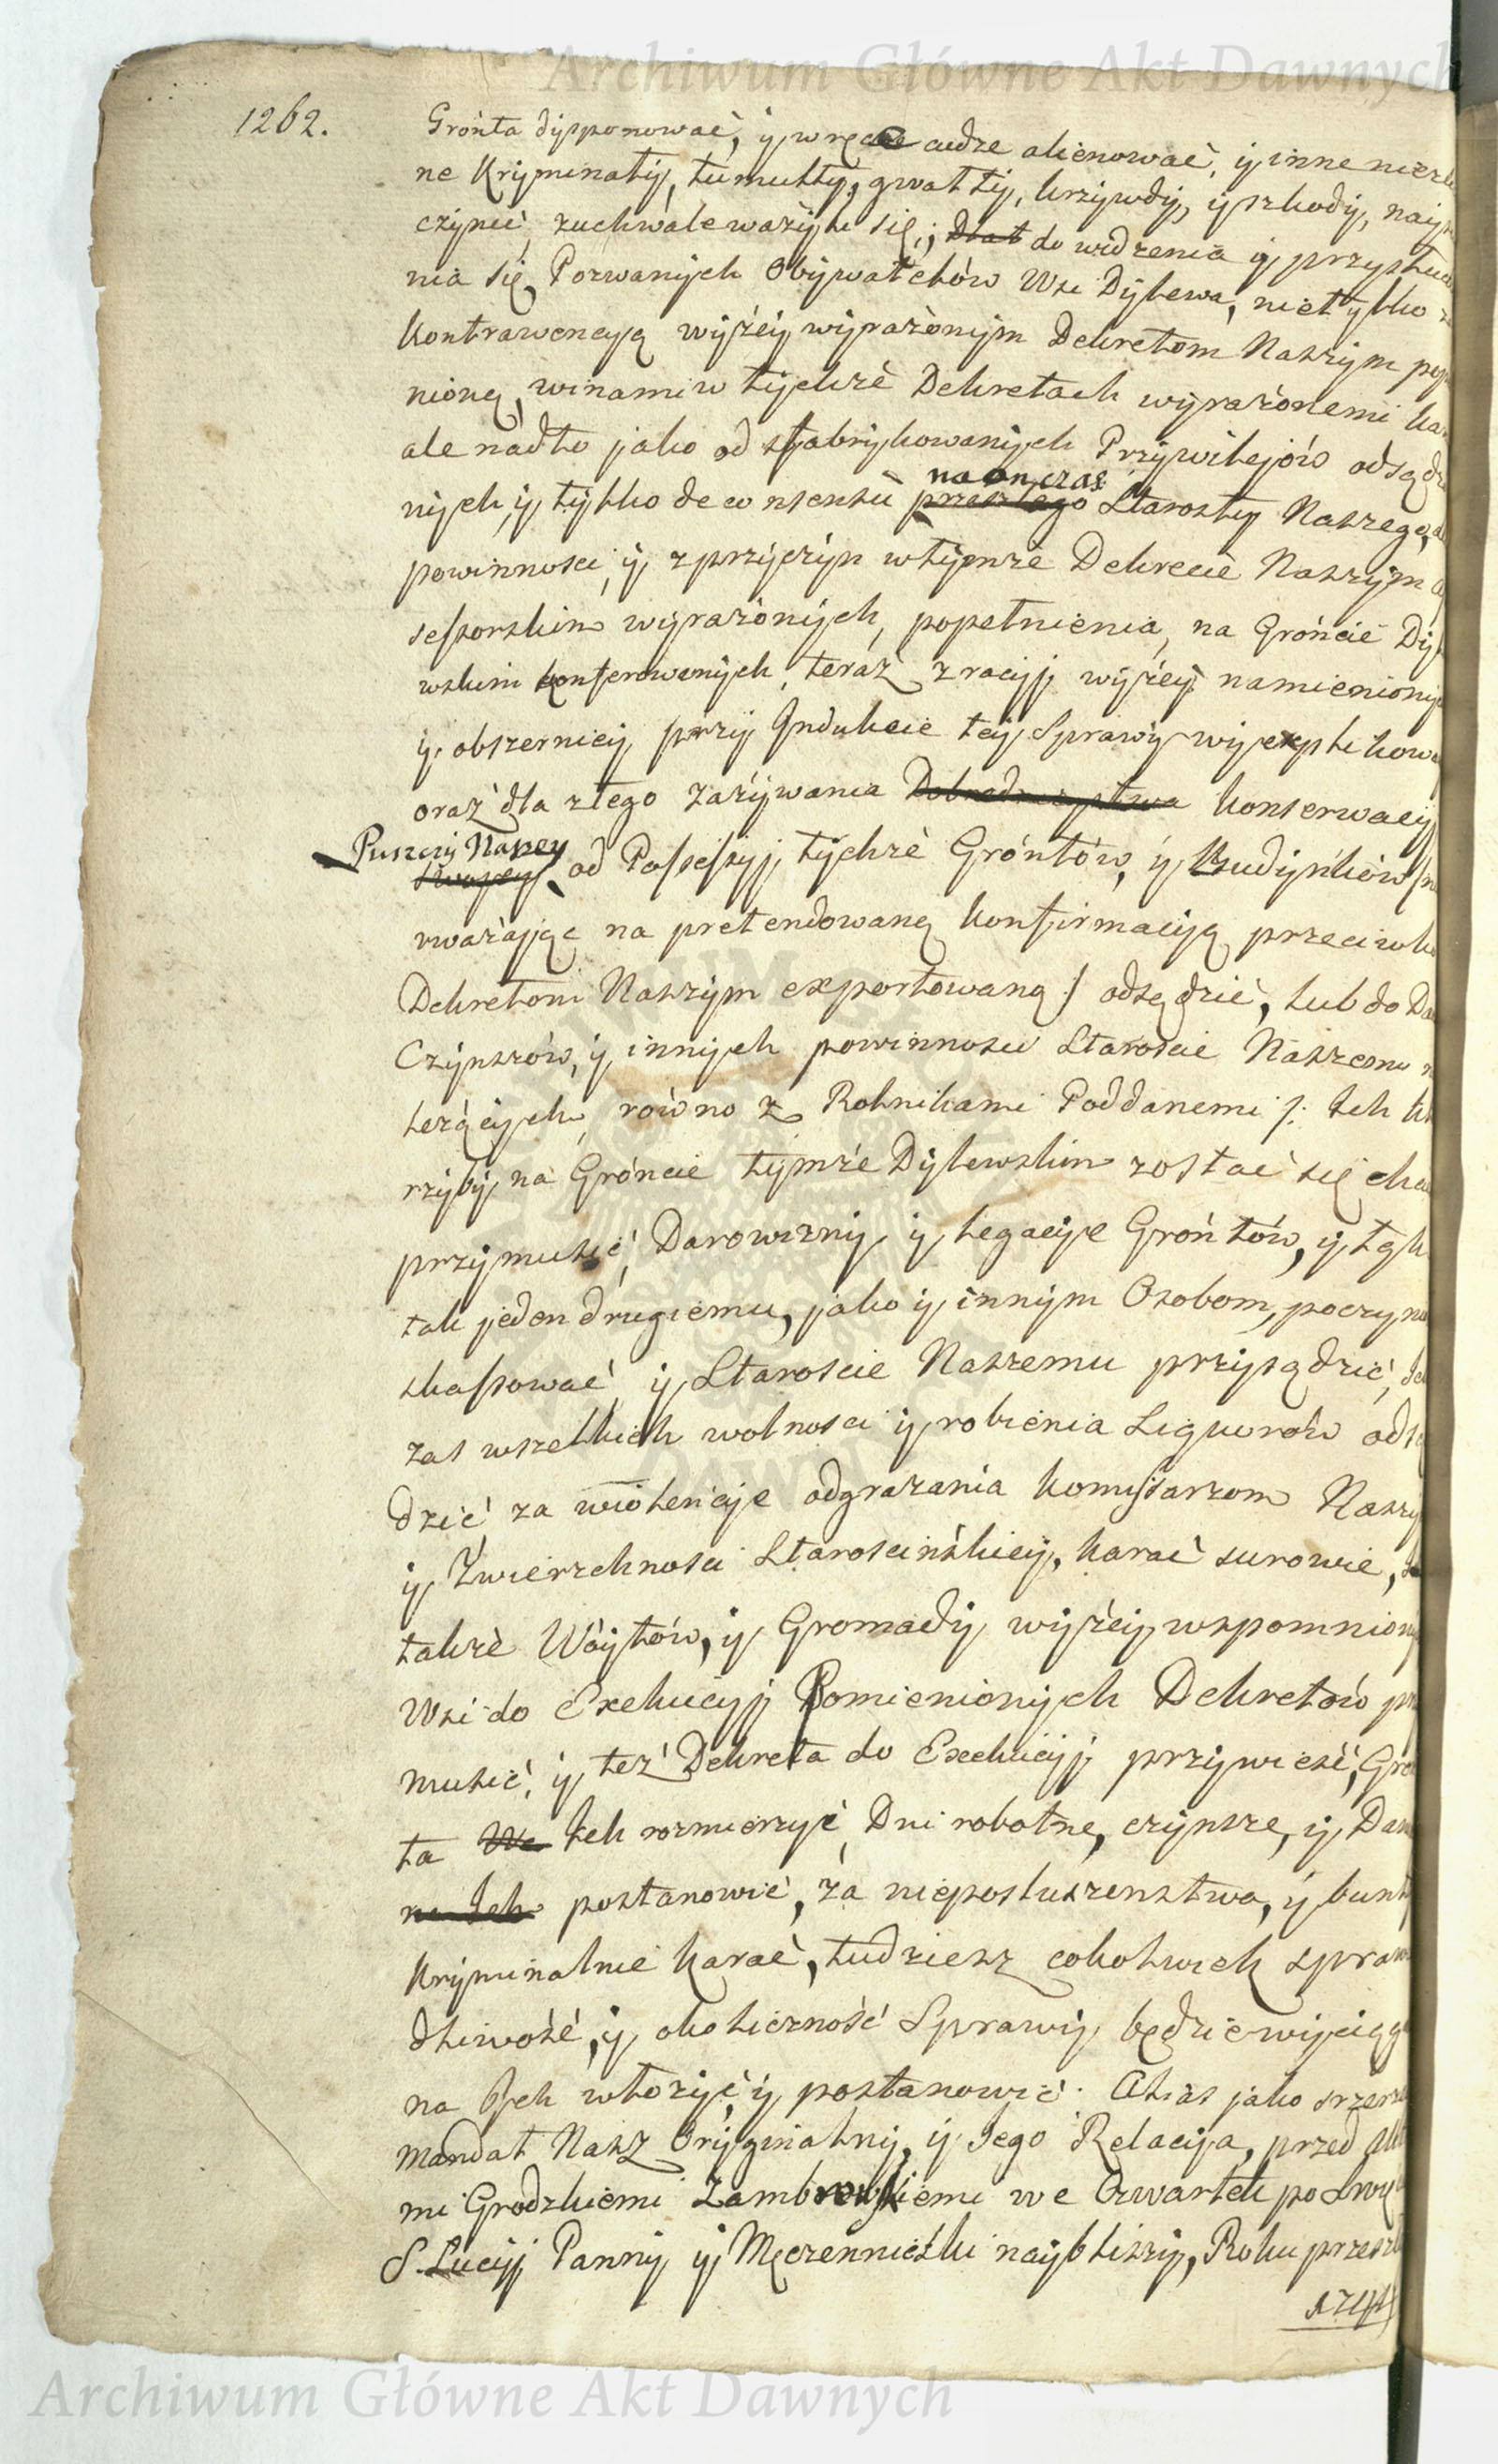 Archiwum Główne Akt Dawnych
1262.
Grónta dysponować, y w ręce cudze alienować, y inne niezl
ne Kryminały, tumulty, gwałty, krzywdy, y szkody, nay
czynić zuchwale ważyli się; do widzenia y przysłucha
nia się Pozwanych Obywatelów Wsi Dylewa, nie tylko
Kontrawencyą wyżey wyrażonym Dekretom Naszym pop
nioną, winami w tychże Dekretach wyrażonemi ka
ale nadto jako od sfabrykowanych Przywilejów odsądzo
nych, y tylko de consensu przeszłego naonczas Starosty Naszego,
powinności, y z przyczyn w tymże Dekrecie Naszym a
sesorskim wyrażonych, popełnienia, na Gróncie Dyl
wskim konserowanych, teraz z racyj wyżey namieniony
y obszerniey przy Indukcie tey Sprawy wyexplikowa
oraz dla złego zażywania Dobrodzieystwa konserwacyj
Puszczy Naszey od Possessyj tychże Gróntów, y Budynków /n
uważając na pretendowaną konfirmacyą przeciwko
Dekretom Naszym exportowaną / odsądzić, lub do Da
Czynszów, y innych powinności Staroście Naszemu n
leżących, równo z Rolnikami Poddanemi /: Ich kt
rzyby na Gróncie tymże Dylewskim zostać się chc
przymusić, Darowizny y legacye Gróntów, y Łąk
tak jeden drugiemu, jako y innym Osobom, poczyn
skassować, y Staroście Naszemu przysądzić, Ich
zaś wszelkich wolności y robienia Liquorów odsą
dzić, za wiolencye odgrażania Komissarzom Naszy
y Zwierzchności Starościńskiey, karać surowie,
także Wóytów, y Gromady wyżey wspomniony
Wsi do Exekucyj Pomienionych Dekretów prz
musić, y też Dekreta do Exekucyj przywieść, Gró
ta We Ich rozmierzyć, Dni robotne, czynsze, y Dan
na Ich postanowić, za nieposłuszenstwa, y bunty
Kryminalnie karać, tudziesz cokolwiek spraw
dliwość, y okoliczność Sprawy będzie wyciąga
na Ich włożyć, y postanowić. Alias jako szerze
Mandat Nasz Oryginalny, y Jego Relacya, przed Akt
mi Grodzkiemi Zambrowskiemi we Czwartek po Świę
S. Lucyj Panny y Męczenniczki naybliższy, Roku przeszł
Archiwum Główne Akt Dawnych